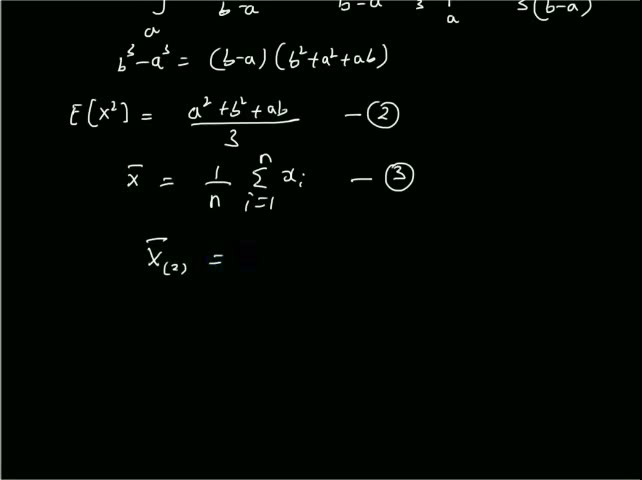 ∫ₐ b-a b-a 3 a 3(b-a)
b³-a³ = (b-a) (b²+a²+ab)
E[X²] = (a²+b²+ab)/3 - ②
x̄ = 1/n Σᵢ₌₁ⁿ xᵢ - ③
X̄₍₂₎ =